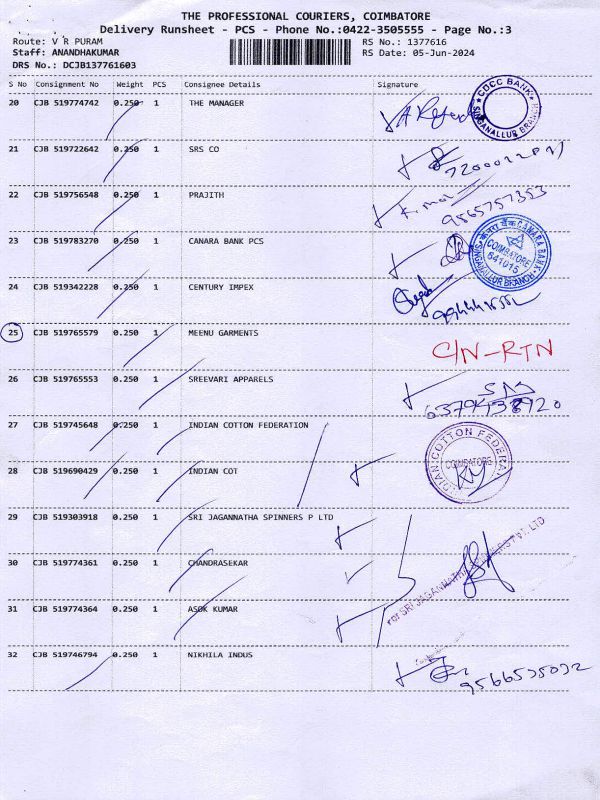 THE PROFESSIONAL COURIERS, COIMBATORE
Delivery Runsheet - PCS - Phone No.:0422-3505555 - Page No.:3
Route: V R PURAM RS No.: 1377616
Staff: ANANDHAKUMAR RS Date: 05-Jun-2024
DRS No.: DCJB137761603
S No Consignment No Weight PCS Consignee Details Signature
20 CJB 519774742 0.250 1 THE MANAGER
CDCC BANK
SINGANALLUR BRANCH
21 CJB 519722642 0.250 1 SRS CO
22 CJB 519756548 0.250 1 PRAJITH
9565757353
23 CJB 519783270 0.250 1 CANARA BANK PCS
केनरा बैंक CANARA BANK
COIMBATORE
641015
SINGANALLUR BRANCH
24 CJB 519342228 0.250 1 CENTURY IMPEX
25 CJB 519765579 0.250 1 MEENU GARMENTS C/N-RTN
26 CJB 519765553 0.250 1 SREEVARI APPARELS
27 CJB 519745648 0.250 1 INDIAN COTTON FEDERATION
INDIAN COTTON FEDERATION
COIMBATORE
28 CJB 519690429 0.250 1 INDIAN COT
29 CJB 519303918 0.250 1 SRI JAGANNATHA SPINNERS P LTD
For SRI JAGANNATHA SPINNERS PVT. LTD
30 CJB 519774361 0.250 1 CHANDRASEKAR
31 CJB 519774364 0.250 1 ASOK KUMAR
32 CJB 519746794 0.250 1 NIKHILA INDUS
9566535032